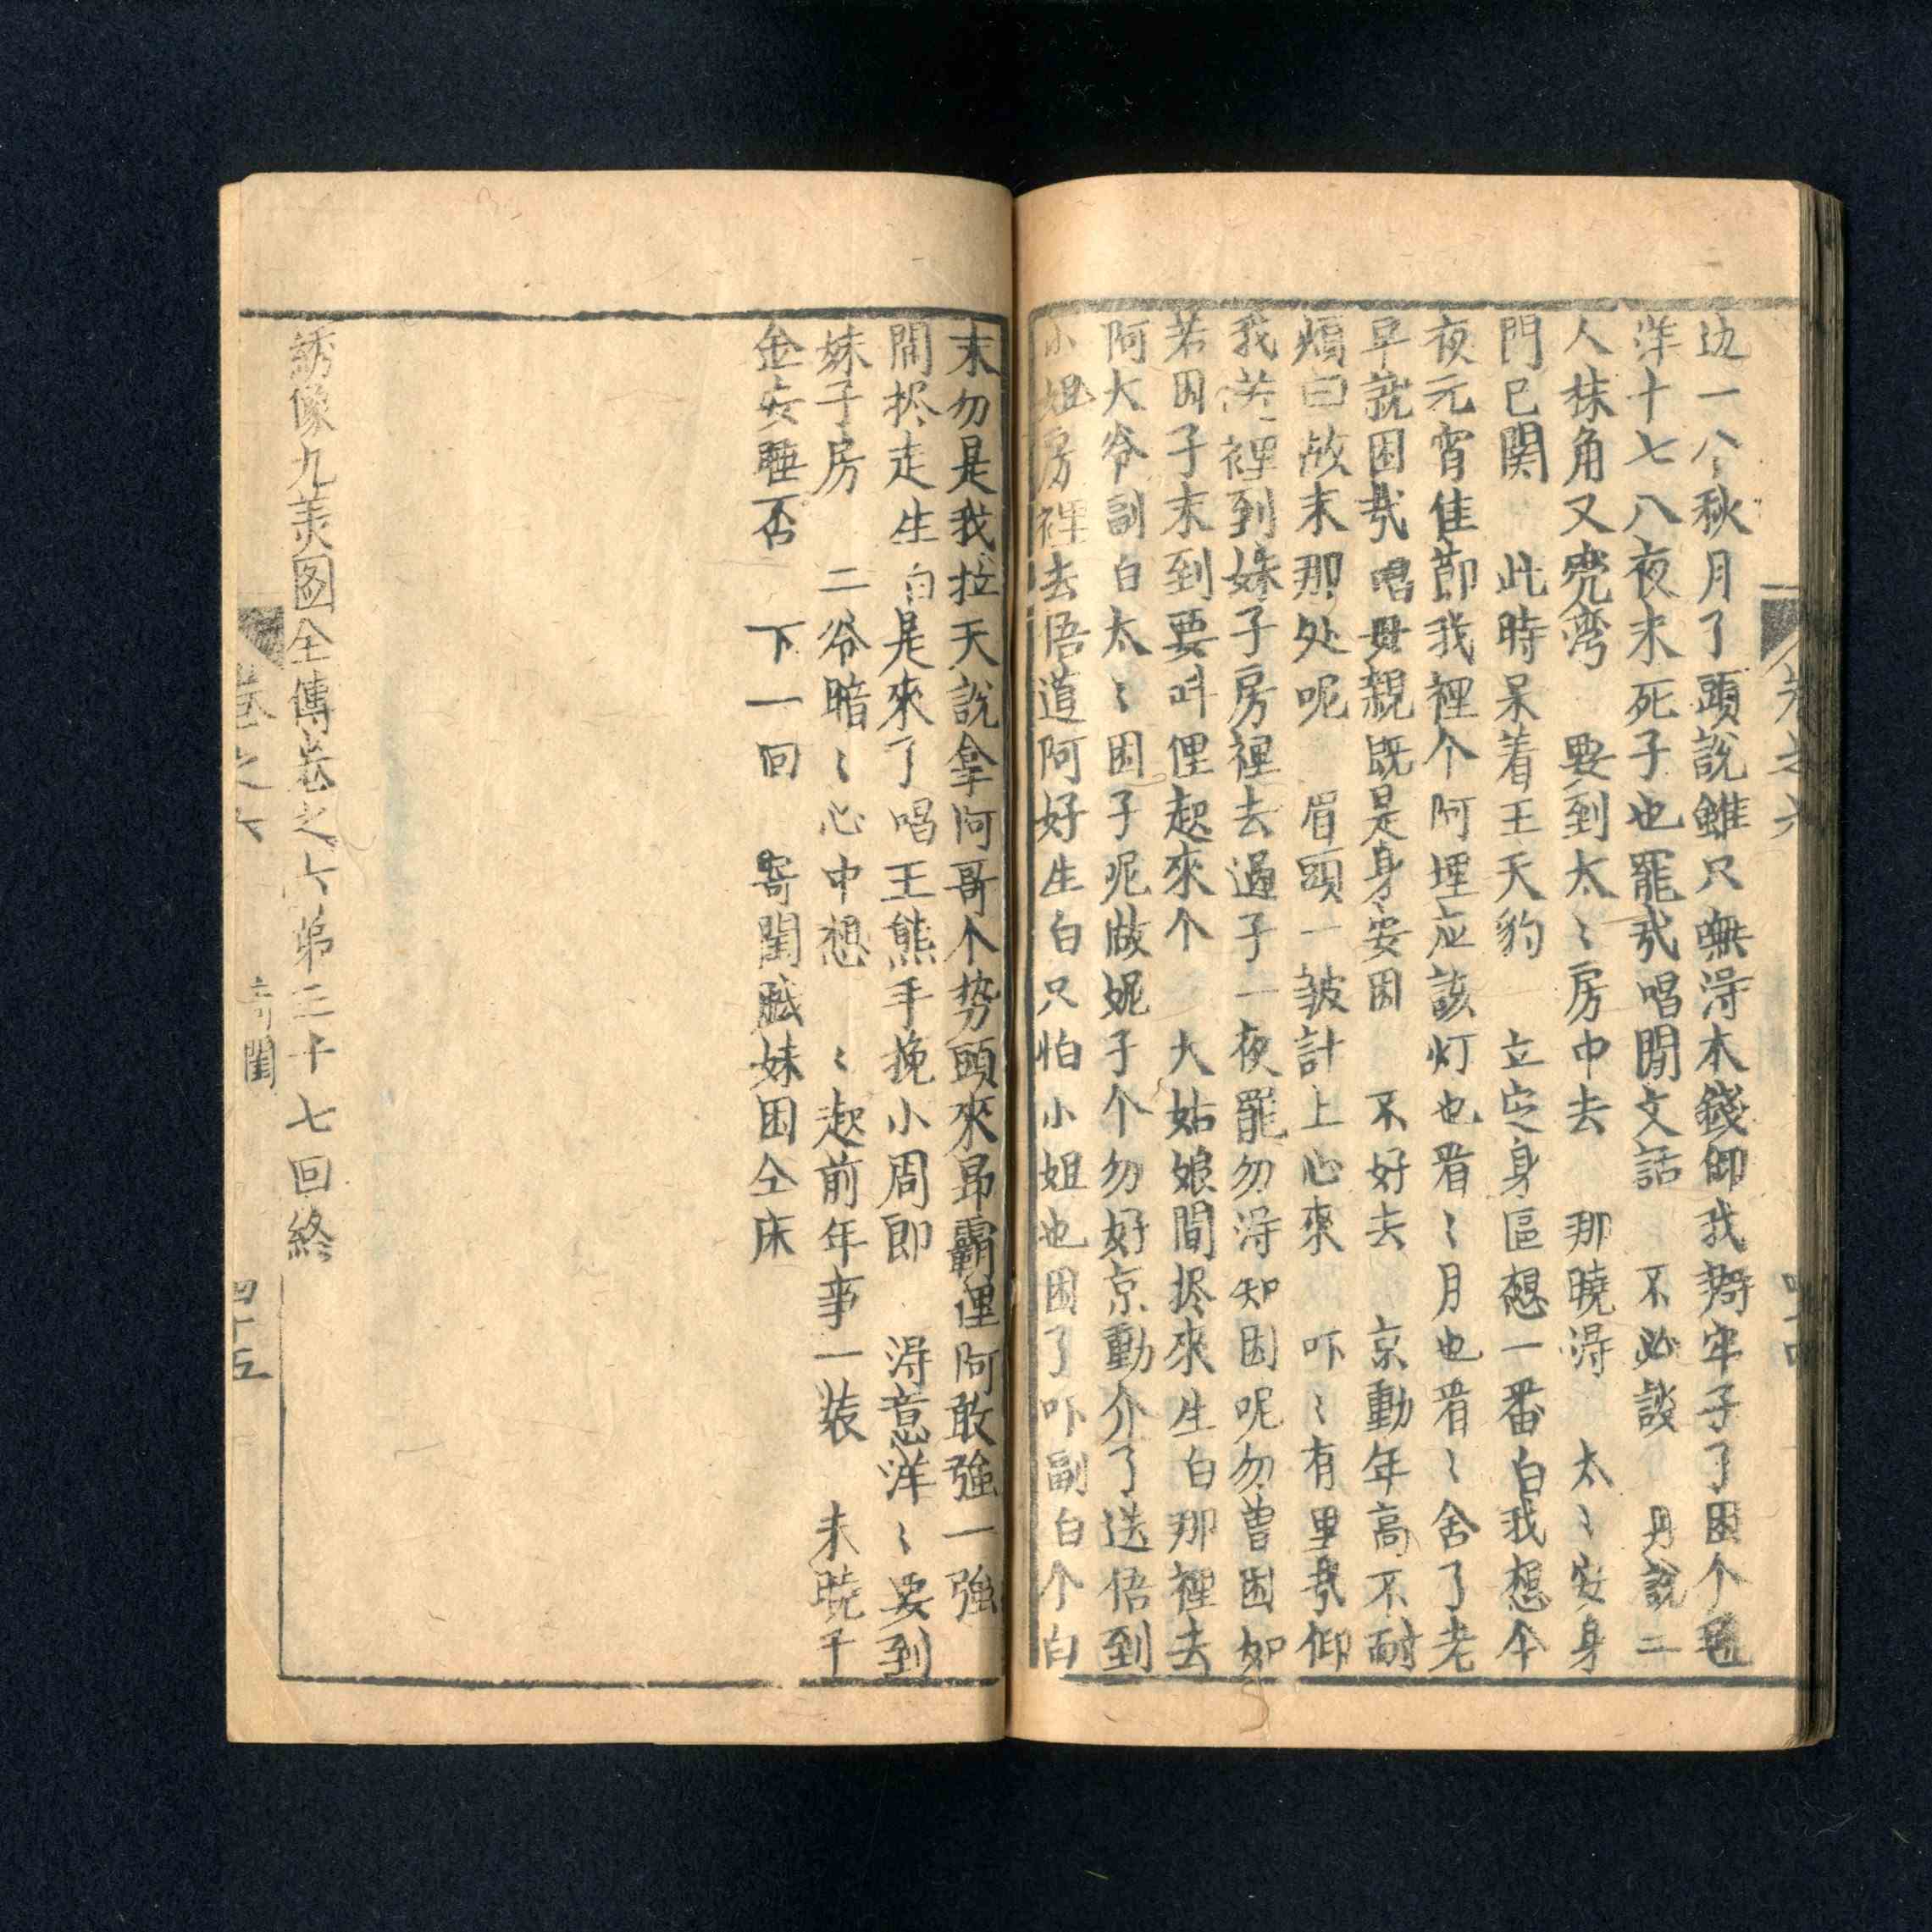 边一个秋月了頭說雖只嘸淂木錢仰我辫牢子了困个毛
洋十七八夜末死子也罷哉唱閒文話 不必談 丹說二
人抹角又兜湾 要到太〻房中去 那曉淂 太〻安身
門已関 此時呆着王天豹 立定身區想一番白我想今
夜元宵佳節我裡个阿埋应該灯也看〻月也看〻舍了老
早就困哉唱母親既是身安困 不好去 京動年高不耐
煩白故末那处呢 眉頭一皱計上心來 吓〻有里哉仰
我裡到妹子房裡去過子一夜罷勿淂知困呢勿曽困如
若困子末到要呌俚起來个 大姑娘間揼來生白那裡去
阿大爷副白太〻困子呢做妮子个勿好京動介了迭悟到
小姐房裡去悟道阿好生白只怕小姐也困了吓副白个白
末勿是我拉天說拿阿哥个势頭來昻霸俚阿敢強一強
開揼走生白是來了唱王熊手挽小周郎 淂意洋〻要到
妹子房 二爷暗〻心中想 〻起前年事一裝 未曉千
金安睡否 下一回 寄閨戯妹困仝床
綉像九美图全傳卷之六第三十七回終
卷之六
寄閨
四十五